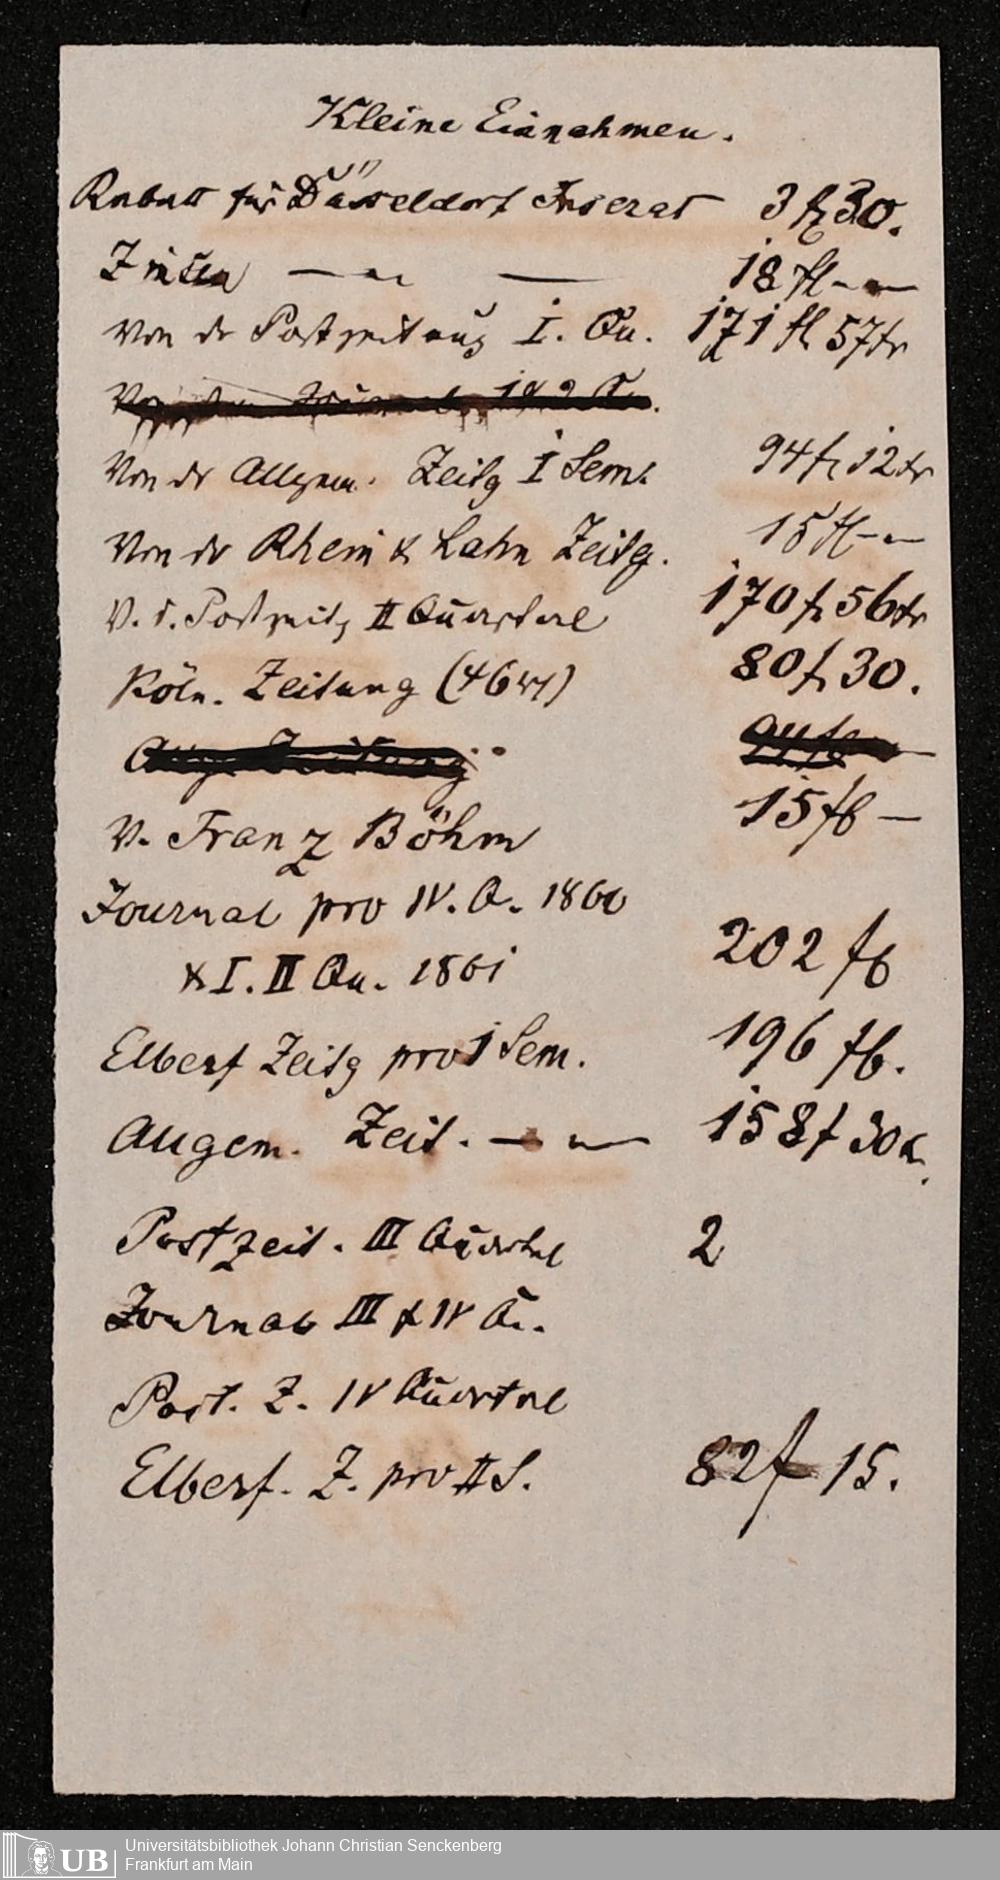 Kleine Einnahmen.
Rabatt für Düsseldorf Inserat 3 fl 30.
Zinsen — „ — 18 fl – „ —
Von dr Postzeitung I. Qu. 171 fl 57 kr
Von dr Allgem. Zeitg I Sem. 94 fl 12 kr
Von dr Rhein & Lahn Zeitg. 15 fl – „ —
V. d. Postzeitg II Quartal 170 fl 56 kr
Köln. Zeitung (46 ) 80 f 30.
V. Franz Böhm 15 fl —
Journal pro IV. Q. 1860
& I. II Qu. 1861 202 fl
Elberf Zeitg pro I Sem. 196 fl.
Allgem. Zeit. — „ — 158 f 30 k.
Postzeit. III Quartal 2
Journal III & IV Q.
Post. Z. IV Quartal
Elberf. Z. pro II S. 82 f 15.
UB
Universitätsbibliothek Johann Christian Senckenberg
Frankfurt am Main